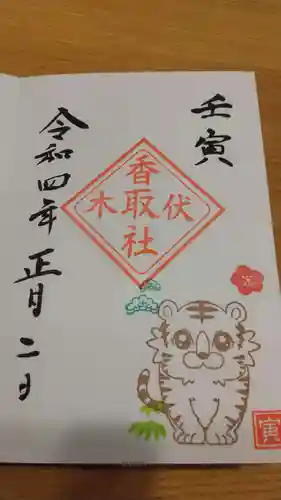 壬寅
香取社
伏木
令和四年 正月 二日
寅